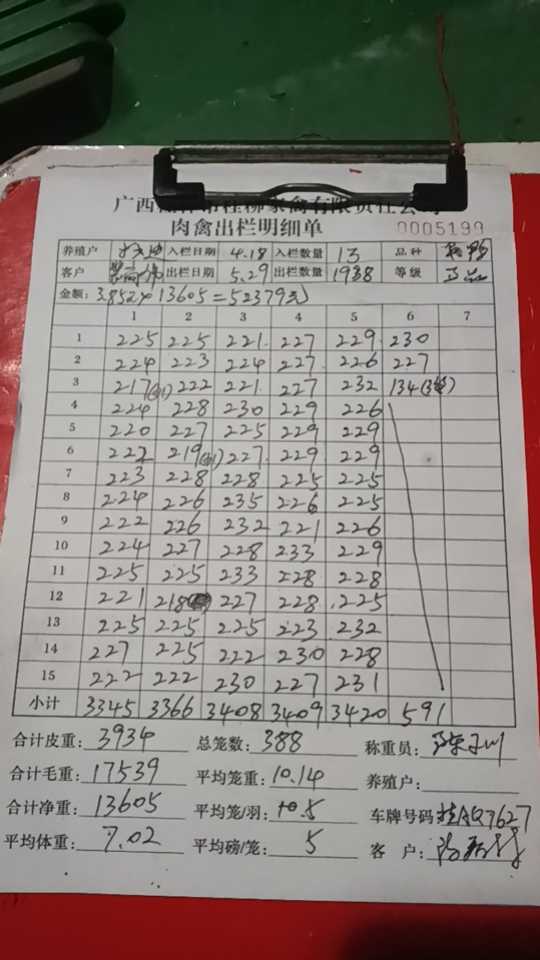 广西 桂柳家禽有限责任公司
肉禽出栏明细单
0005199
养殖户 入栏日期 4.18 入栏数量 13 品种
客户 出栏日期 5.29 出栏数量 1938 等级 正品
金额: 3.85 × 13605 = 52379元
1 2 3 4 5 6 7
1 225 225 221 227 229 230
2 224 223 224 227 226 227
3 217 222 221 227 232 134
4 224 228 230 229 226
5 220 227 225 229 229
6 222 219 227 229 229
7 223 228 228 225 225
8 224 226 235 226 225
9 222 226 232 221 226
10 224 227 228 233 229
11 225 225 233 228 228
12 221 218 227 228 225
13 225 225 225 223 232
14 227 225 222 230 228
15 222 222 230 227 231
小计 3345 3366 3408 3409 3420 591
合计皮重: 3934 总笼数: 388 称重员:
合计毛重: 17539 平均笼重: 10.14 养殖户:
合计净重: 13605 平均笼/羽: 车牌号码 桂AQ7627
平均体重: 7.02 平均磅/笼: 5 客 户: